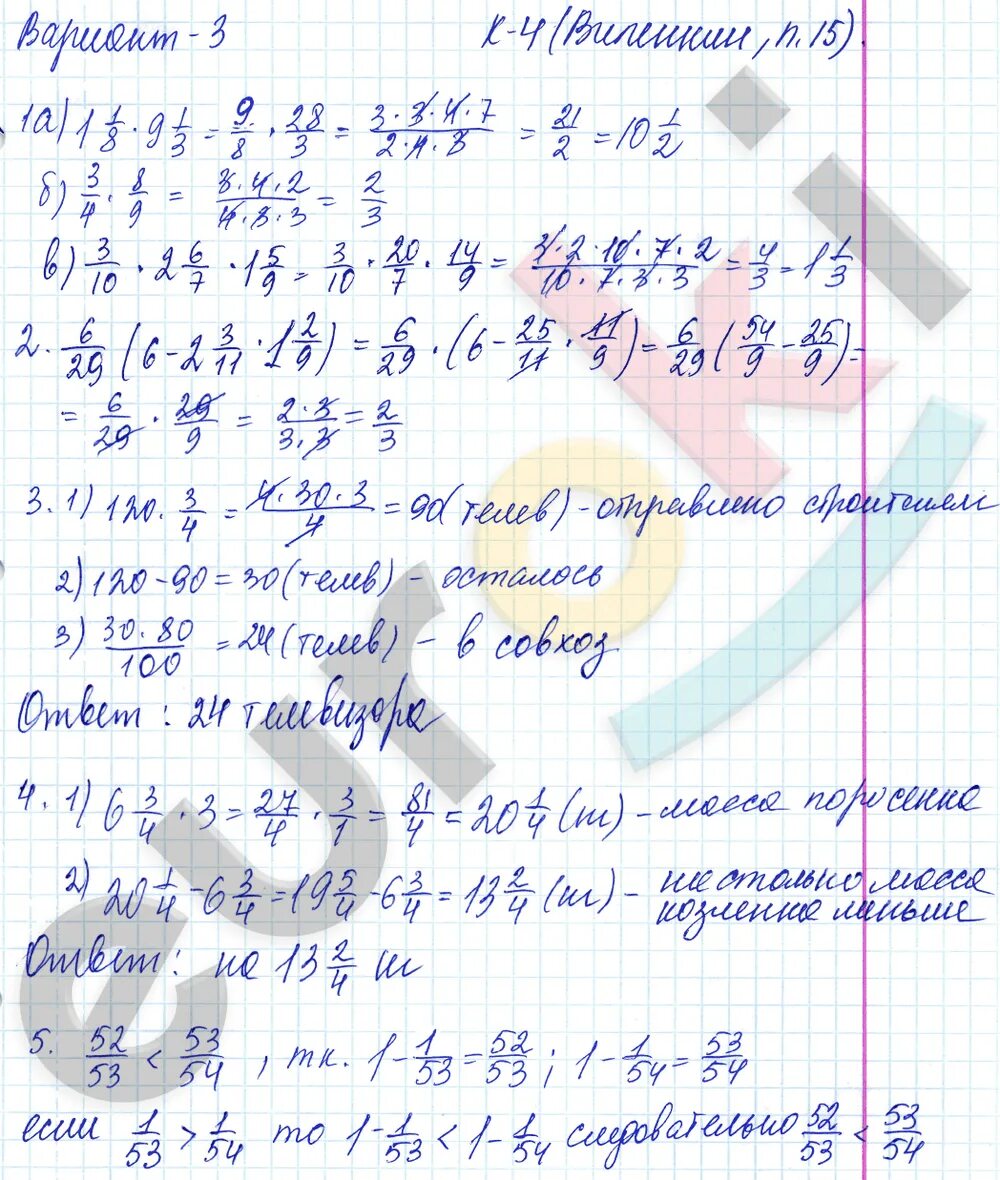 Вариант-3 К-4 (Виленкин, п.15).
1а) 1 1/8 · 9 1/3 = 9/8 · 28/3 = (3·3·4·7)/(2·4·3) = 21/2 = 10 1/2
б) 3/4 · 8/9 = (3·4·2)/(4·3·3) = 2/3
в) 3/10 · 2 6/7 · 1 5/9 = 3/10 · 20/7 · 14/9 = (3·2·10·7·2)/(10·7·3·3) = 4/3 = 1 1/3
2. 6/29 (6 - 2 3/11 · 1 2/9) = 6/29 · (6 - 25/11 · 11/9) = 6/29 (54/9 - 25/9) =
= 6/29 · 29/9 = (2·3)/(3·3) = 2/3
3. 1) 120 · 3/4 = (4·30·3)/4 = 90 (телев) - отправлено строителям
2) 120 - 90 = 30 (телев) - осталось
3) (30·80)/100 = 24 (телев) - в совхоз
Ответ: 24 телевизора
4. 1) 6 3/4 · 3 = 27/4 · 3/1 = 81/4 = 20 1/4 (кг) - масса поросенка
2) 20 1/4 - 6 3/4 = 19 5/4 - 6 3/4 = 13 2/4 (кг) - настолько масса
козленка меньше
Ответ: на 13 2/4 кг
5. 52/53 < 53/54, т.к. 1 - 1/53 = 52/53; 1 - 1/54 = 53/54
если 1/53 > 1/54 то 1 - 1/53 < 1 - 1/54 следовательно 52/53 < 53/54
euroki